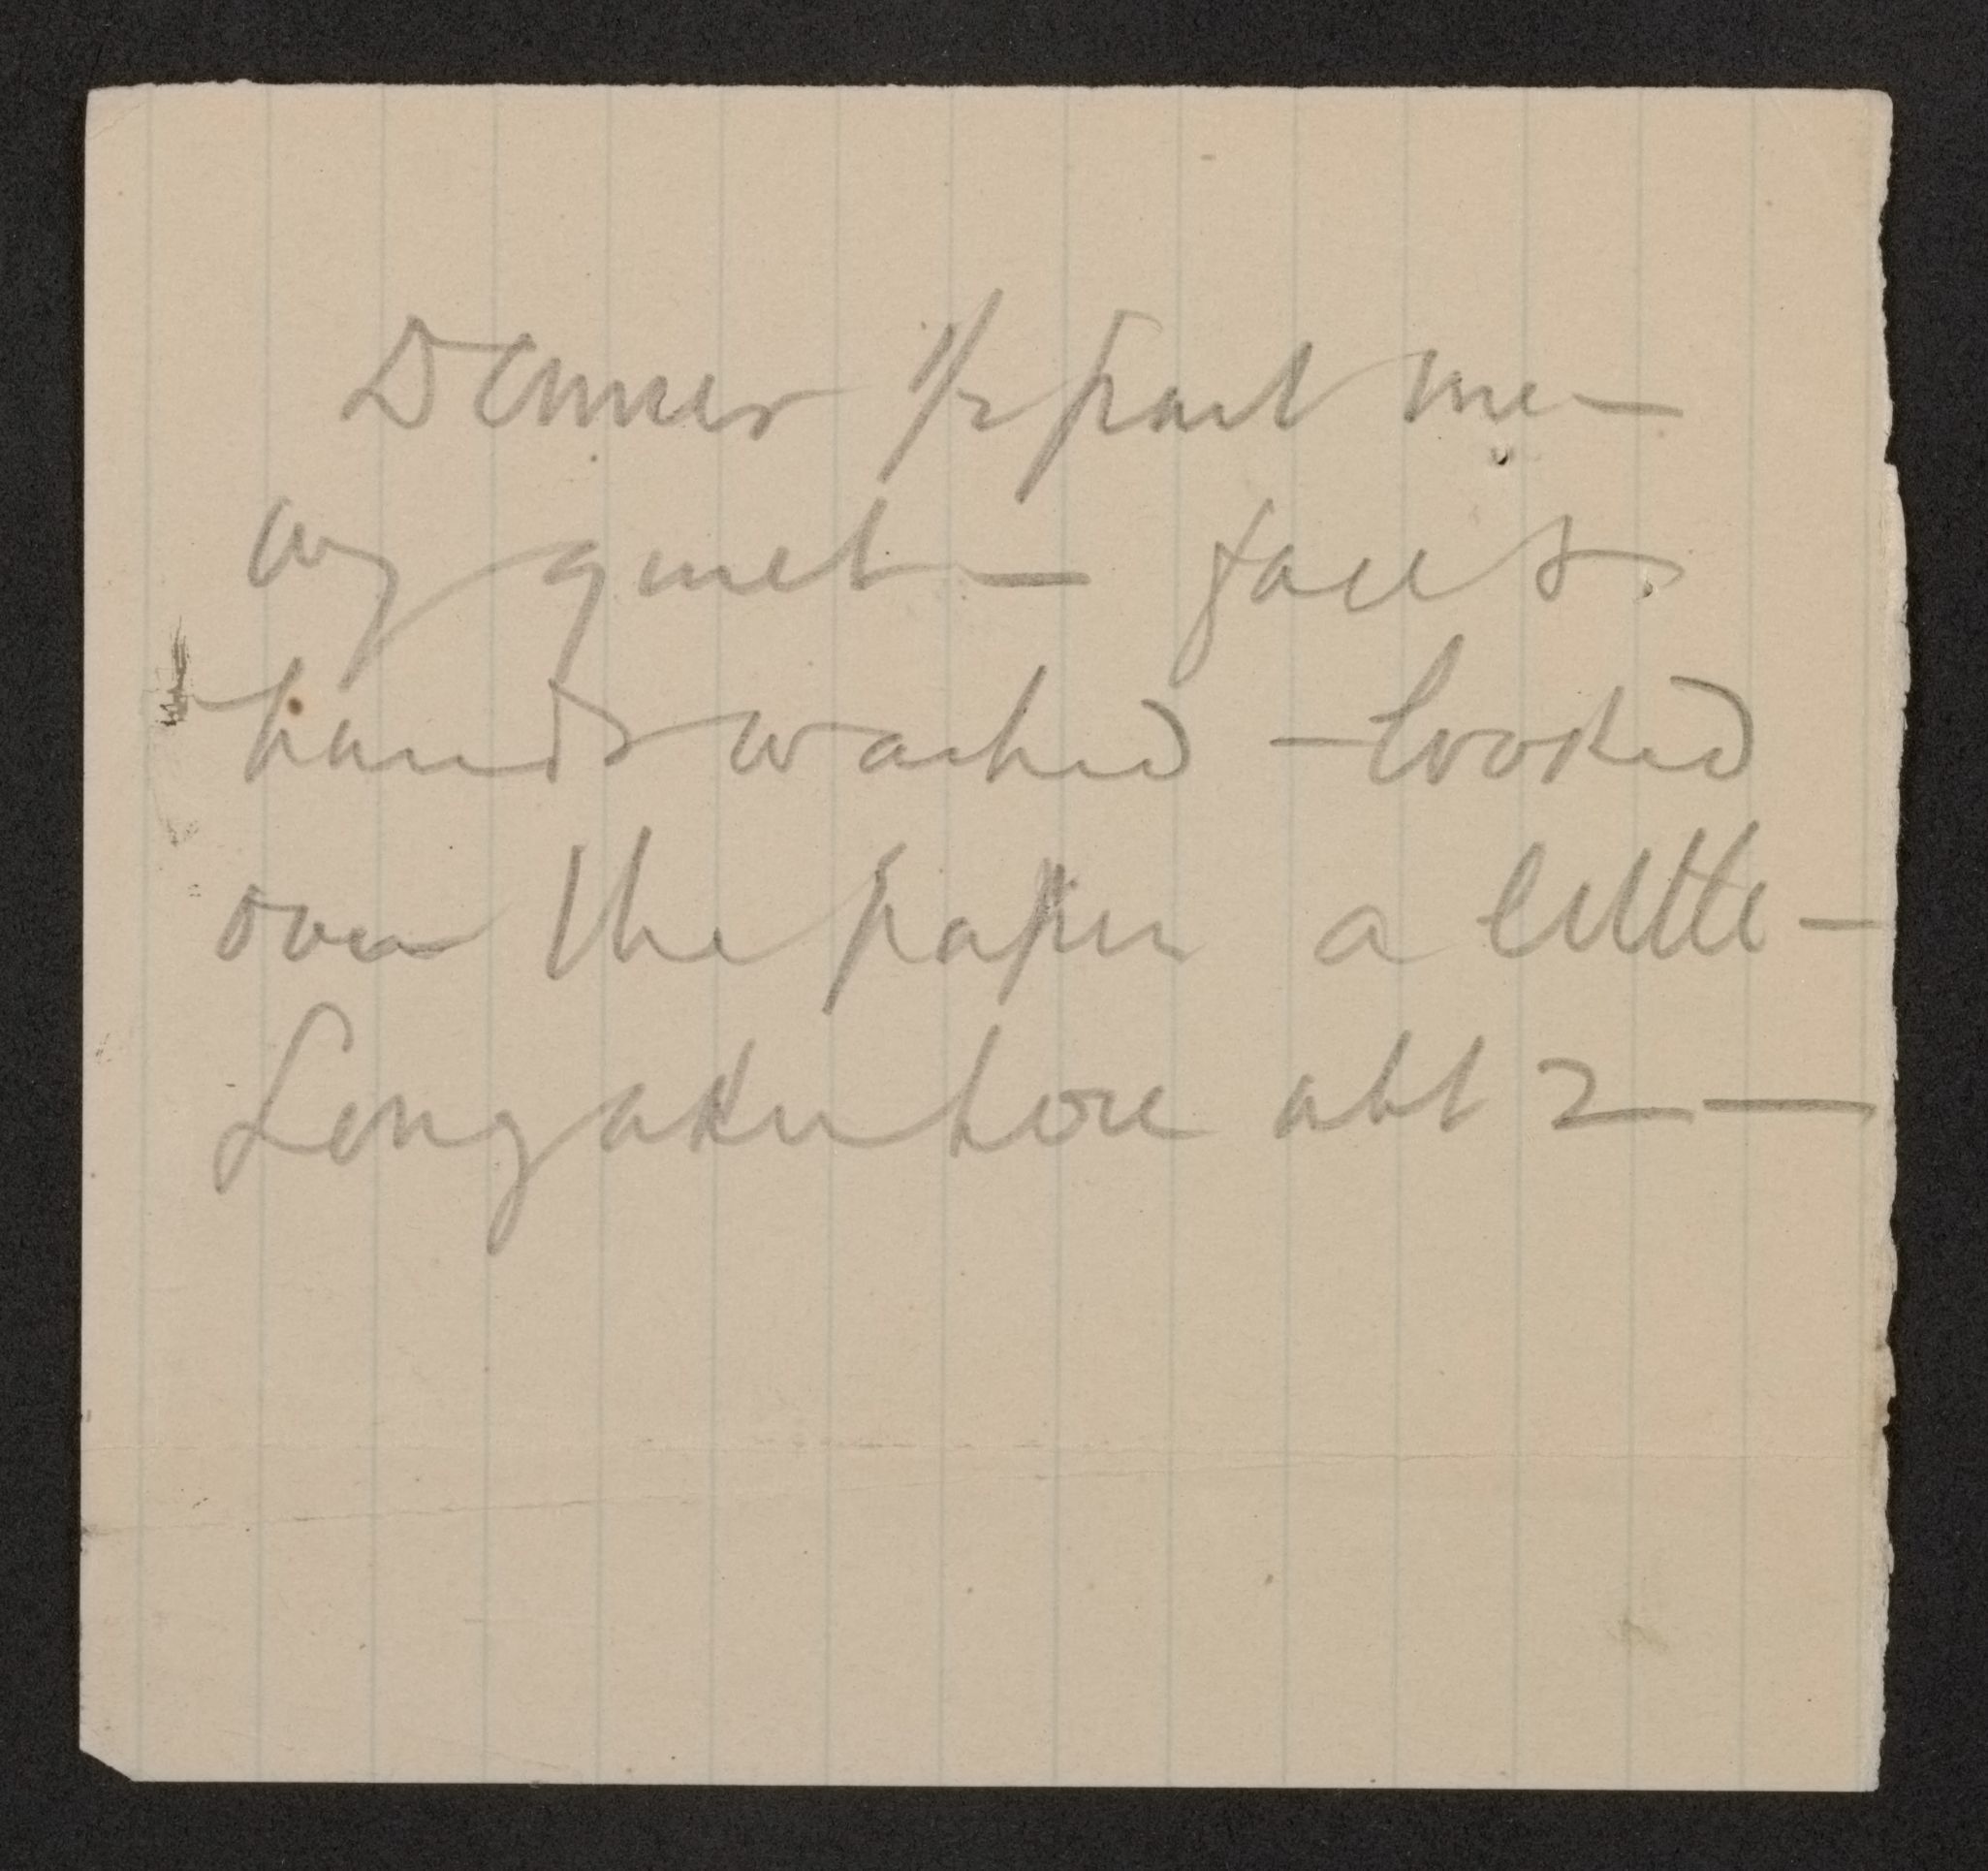 Dinner 1/2 past one—
very quiet — face &
hands washed — looked
over the paper a little —
Longaker here abt 2 —